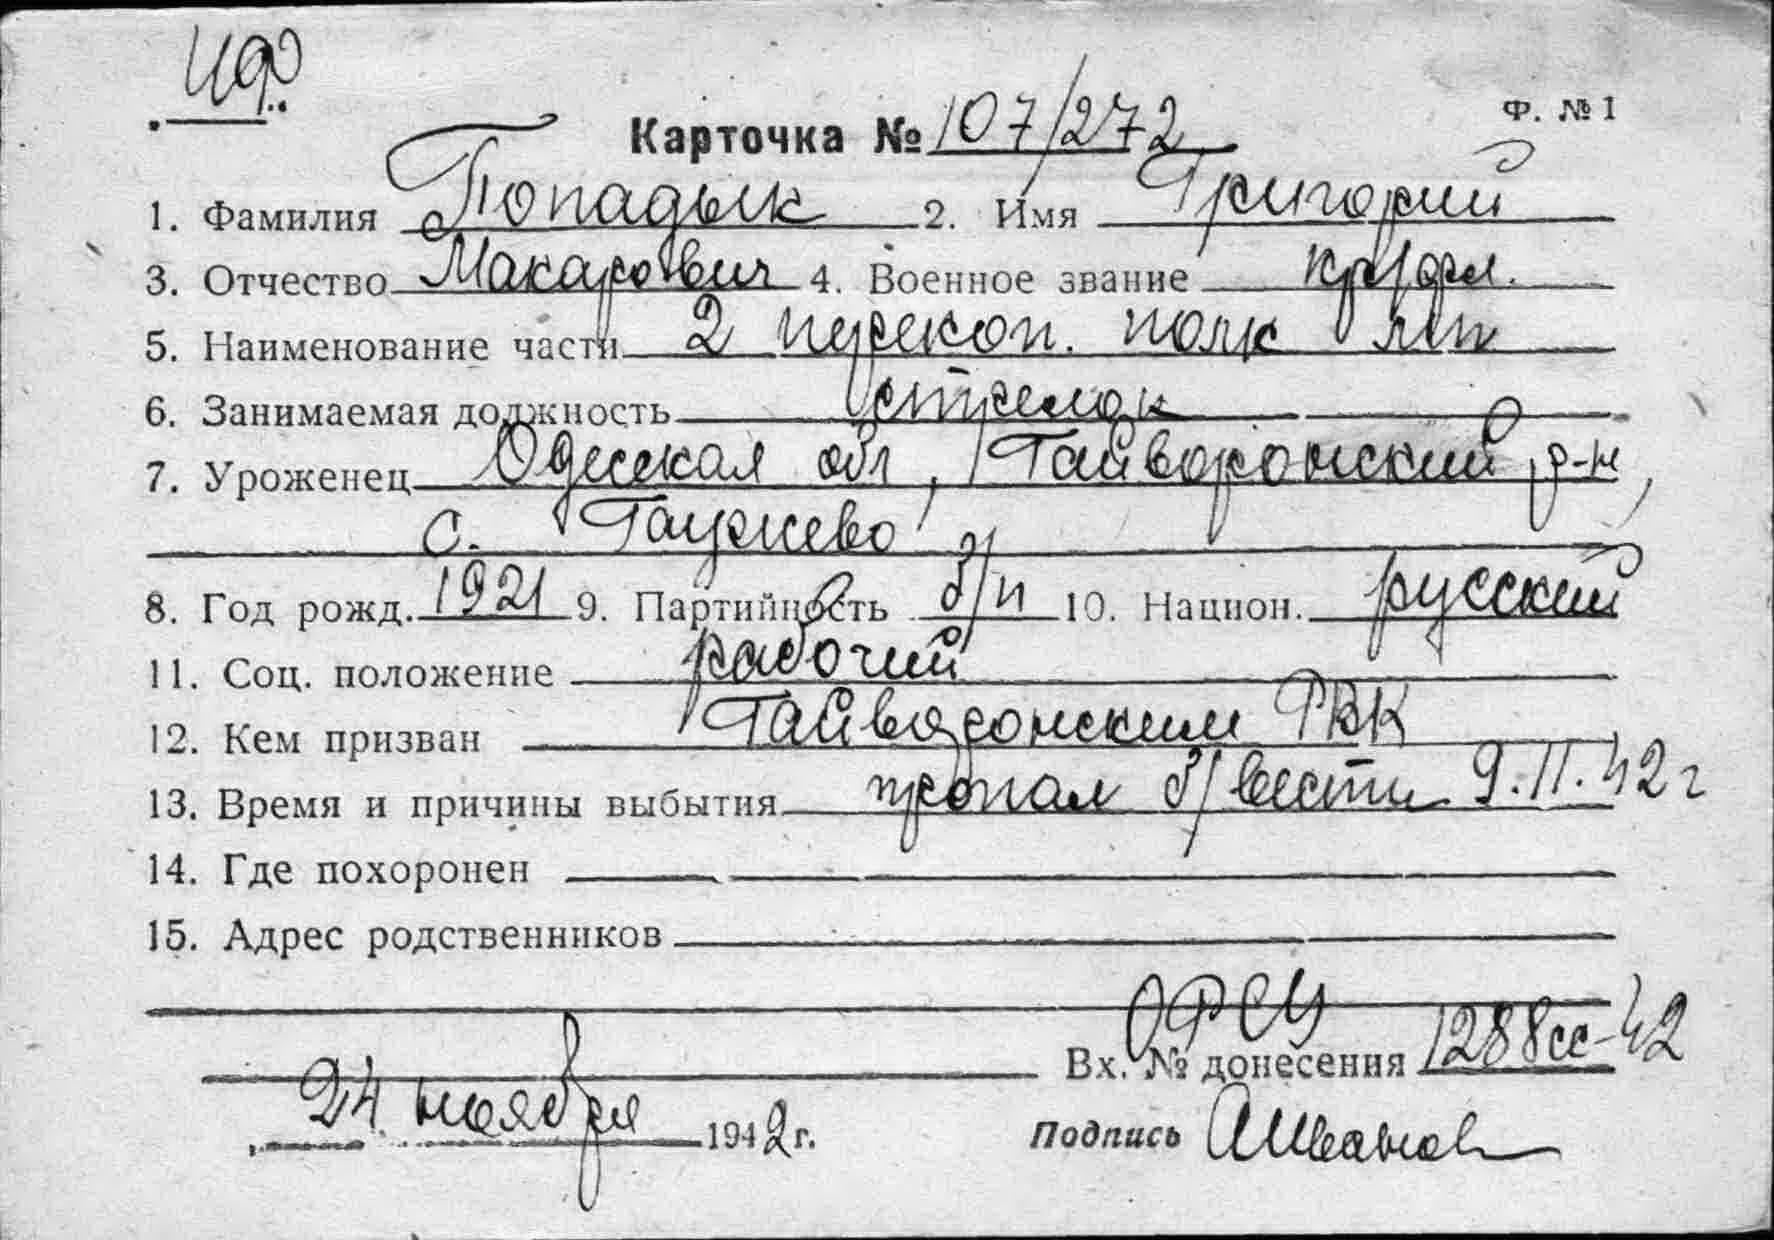 ЧФ
Ф. № 1
Карточка № 107/272
1. Фамилия Попадык 2. Имя Григорий
3. Отчество Макарович 4. Военное звание кр/фл.
5. Наименование части 2 перекоп. полк мп
6. Занимаемая должность стрелок
7. Уроженец Одесская обл, Гайворонский р-н,
с. Таужево
8. Год рожд. 1921 9. Партийность б/п 10. Национ. русский
11. Соц. положение рабочий
12. Кем призван Гайворонским РВК
13. Время и причины выбытия пропал б/вести 9.II.42 г
14. Где похоронен
15. Адрес родственников
Вх. № донесения 1288сс-42
24 ноября 1942 г. Подпись